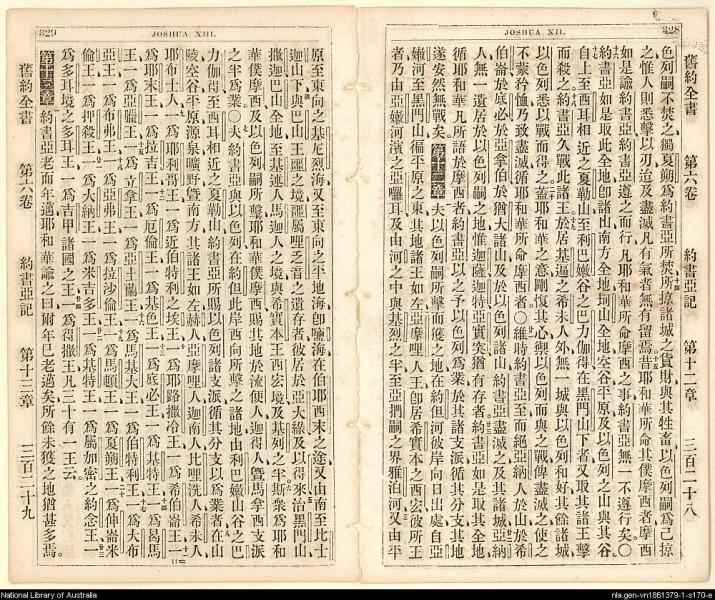 328
JOSHUA XII.
舊約全書 第六卷 約書亞記 第十二章 三百二十八
色列嗣不焚之獨夏朔爲約書亞所焚所掠諸城之貨財與其牲畜以色列嗣爲己掠
之惟人則悉擊以刃迨及盡滅凡有氣者無有留焉昔耶和華所命其僕摩西者摩西
如是諭約書亞約書亞遵之而行凡耶和華所命摩西之事約書亞無一不遵行矣○
約書亞如是取此全地卽諸山南方全地坷山全地空谷平原以及以色列之山與其谷
自上至西耳相近之夏勒山至利巴嫩谷之巴力伽得在黑門山下者又取其諸王擊
而殺之約書亞久戰此諸王於居基遍之希未人外無一城與以色列和好其餘諸城
以色列悉以戰而得之蓋耶和華之意剛愎其心禦以色列而與之戰俾盡滅之使之
不蒙矜恤乃致盡滅循耶和華所命摩西者○維時約書亞至而絕亞納人於山於希
伯崙於底必於亞拿伯於猶大諸山及於以色列諸山約書亞盡滅之及其諸城亞納
人無一遺居於以色列嗣之地惟迦薩迦特亞實突猶有存者約書亞如是取其全地
循耶和華凡所語於摩西者約書亞以之予以色列爲業於其諸支派循其分支其地
遂安然無戰矣。第十二章 夫以色列嗣所擊而獲之地在約但河彼岸向日出處自亞
嫩河至黑門山徧平原之東其地諸王如左亞摩哩人王卽居希實本之西宏彼所王
者乃由亞嫩河濱之亞囉耳及由河之中與基列之半至亞捫嗣之界雅泊河又由平
329
JOSHUA XIII.
原至東向之基尼烈海又至東向之平地海卽鹽海在伯耶西末之途又由南至比士
迦山下與巴山王噩之境噩屬哩乏音之遺存者彼居於亞大綠及以得來治黑門山
撒迦巴山全地至基述人馬迦人之境與希實本王西宏境及基列之半斯衆爲耶和
華僕摩西及以色列嗣所擊耶和華僕摩西賜其地於流便人迦得人曁馬拿西支派
之半爲業○夫約書亞與以色列在約但此岸西向所擊之諸地由利巴嫩山谷之巴
力伽得至西耳相近之夏勒山約書亞所賜以色列諸支派循其分支以爲業者在山
陵空谷平原源泉曠野曁南方其諸王如左赫人亞摩哩人迦南人比哩洗人希未人
耶布士人一爲耶利哥王一爲近伯特利之埃王一爲耶路撒冷王一爲希伯崙王一
爲耶末王一爲拉吉王一爲厄倫王一爲基色王一爲底必王一爲基特王一爲曷馬
王一爲亞臘王一爲立拿王一爲亞土蘭王一爲馬基大王一爲伯特利王一爲大布
亞王一爲布弗王一爲亞弗王一爲拉沙倫王一爲馬頓王一爲夏朔王一爲伸崙米
倫王一爲押殺王一爲大納王一爲米吉多王一爲基特王一爲屬加密之約念王一
爲多耳境之多耳王一爲吉甲諸國之王一爲得撒王凡三十有一王云
第十三章 約書亞老而年邁耶和華諭之曰爾年已老邁矣所餘未獲之地猶甚多焉。
舊約全書 第六卷 約書亞記 第十三章 三百二十九
National Library of Australia
nla.gen-vn1861379-1-s170-e